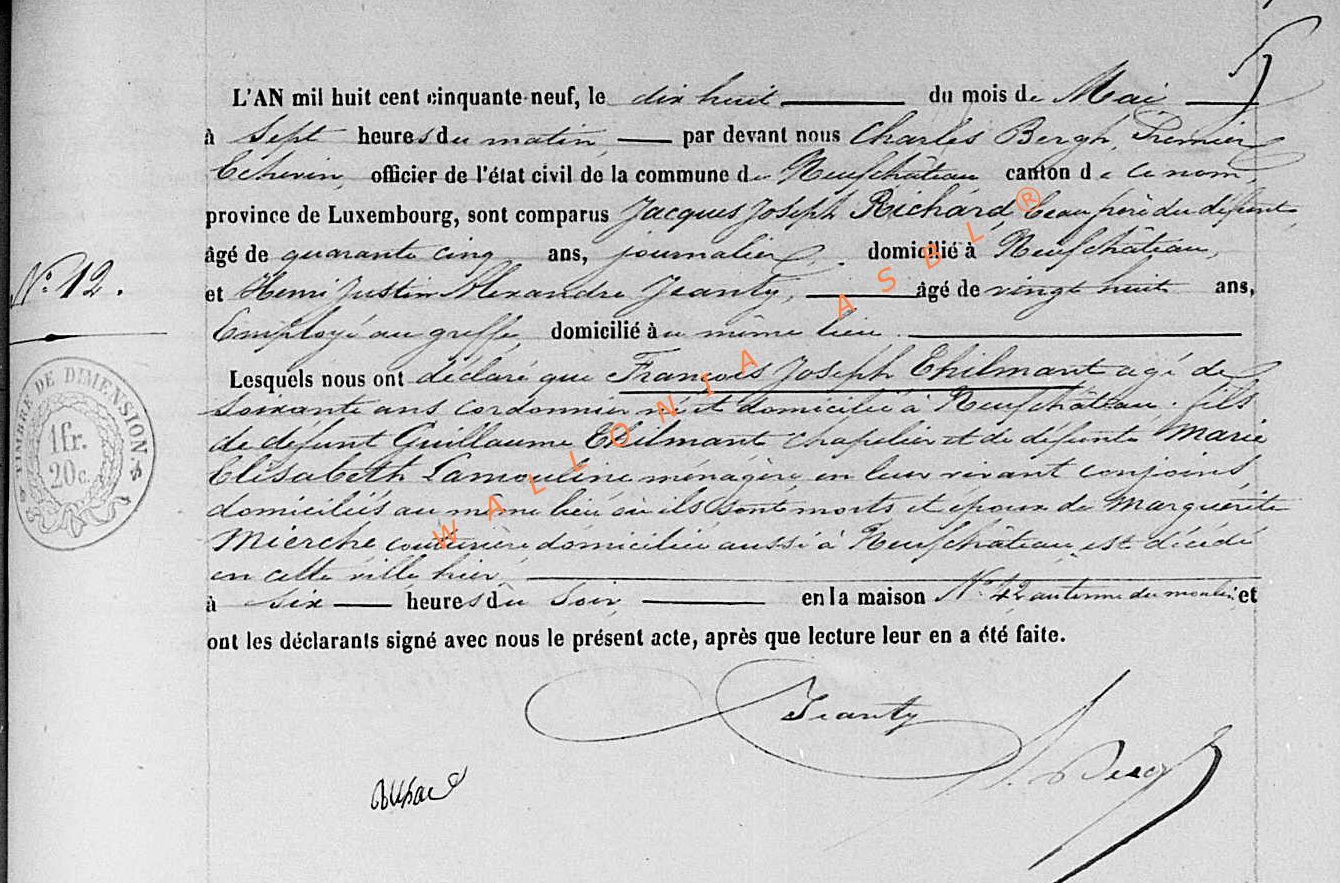 5
L'AN mil huit cent cinquante-neuf, le dix huit du mois de Mai
à Sept heures du matin, par devant nous Charles Bergh, Premier
Echevin, officier de l'état civil de la commune de Neufchâteau canton de ce nom,
province de Luxembourg, sont comparus Jacques Joseph Richard, beau père du défunt,
âgé de quarante cinq ans, journalier, domicilié à Neufchâteau,
N° 12.
et Henri Justin Alexandre Jeanty, âgé de vingt huit ans,
Employé au greffe, domicilié au même lieu
Lesquels nous ont déclaré que François Joseph Thilmant agé de
soixante ans cordonnier né et domicilié à Neufchâteau, fils
de défunt Guillaume Thilmant chapelier et de defunte Marie
Elisabeth Lamouline ménagère en leur vivant conjoins
domiciliés au même lieu où ils sont morts et époux de Marguerite
Mierche couturière domiciliée aussi à Neufchâteau, est décédé
en cette ville hier,
à six heures du Soir, en la maison N° 42 au terme du moulin et
ont les déclarants signé avec nous le présent acte, après que lecture leur en a été faite.
TIMBRE DE DIMENSION
1 fr.
20 c.
WALLONIA ASBL ®
Jeanty
Richard